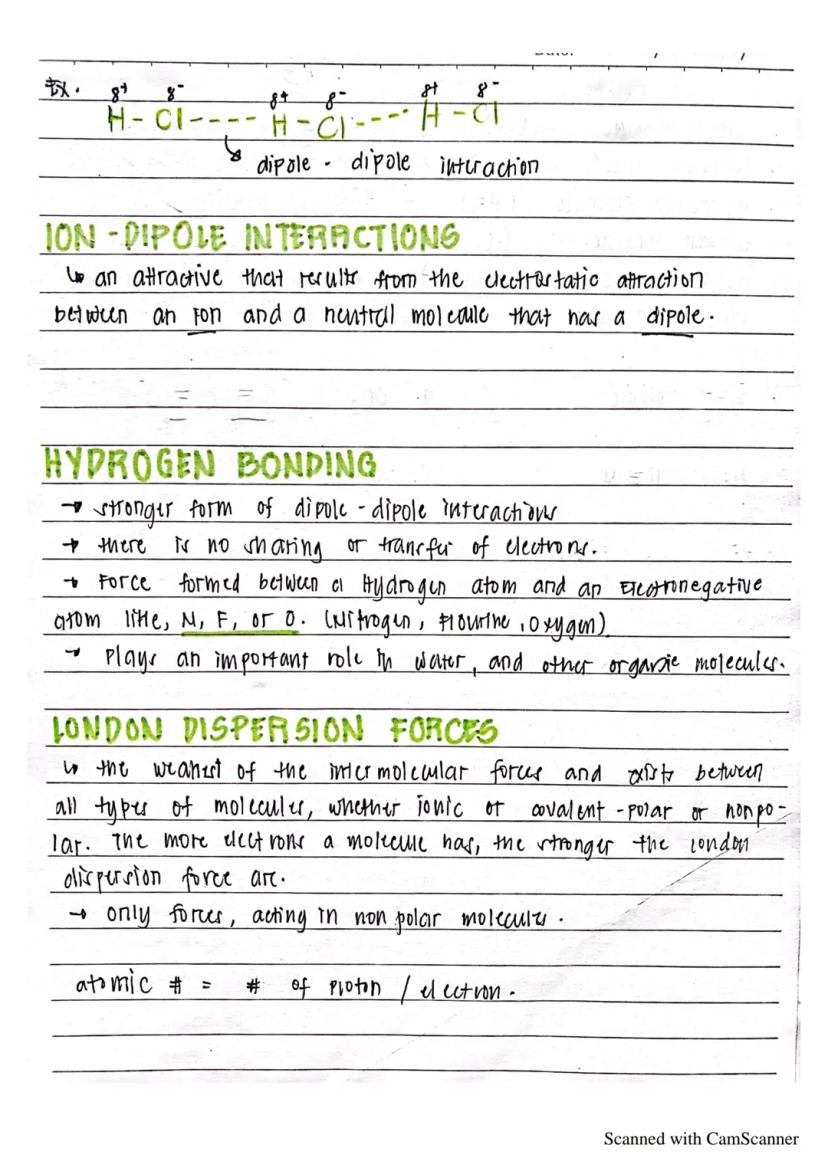 Date: / /
Ex. δ+ δ- δ+ δ- δ+ δ-
H - Cl ---- H - Cl ---- H - Cl
↳ dipole - dipole interaction
ION - DIPOLE INTERACTIONS
↳ an attractive that results from the electrostatic attraction
between an ion and a neutral molecule that has a dipole.
HYDROGEN BONDING
→ stronger form of dipole - dipole interactions
→ there is no sharing or transfer of electrons.
→ Force formed between a Hydrogen atom and an Electronegative
atom like, N, F, or O. (Nitrogen, Flourine, Oxygen)
→ Plays an important role in water, and other organic molecules.
LONDON DISPERSION FORCES
↳ the weakest of the intermolecular forces and exists between
all types of molecules, whether ionic or covalent - polar or nonpo-
lar. The more electrons a molecule has, the stronger the london
dispersion force are.
→ only forces, acting in non polar molecules.
atomic # = # of proton / electron.
Scanned with CamScanner